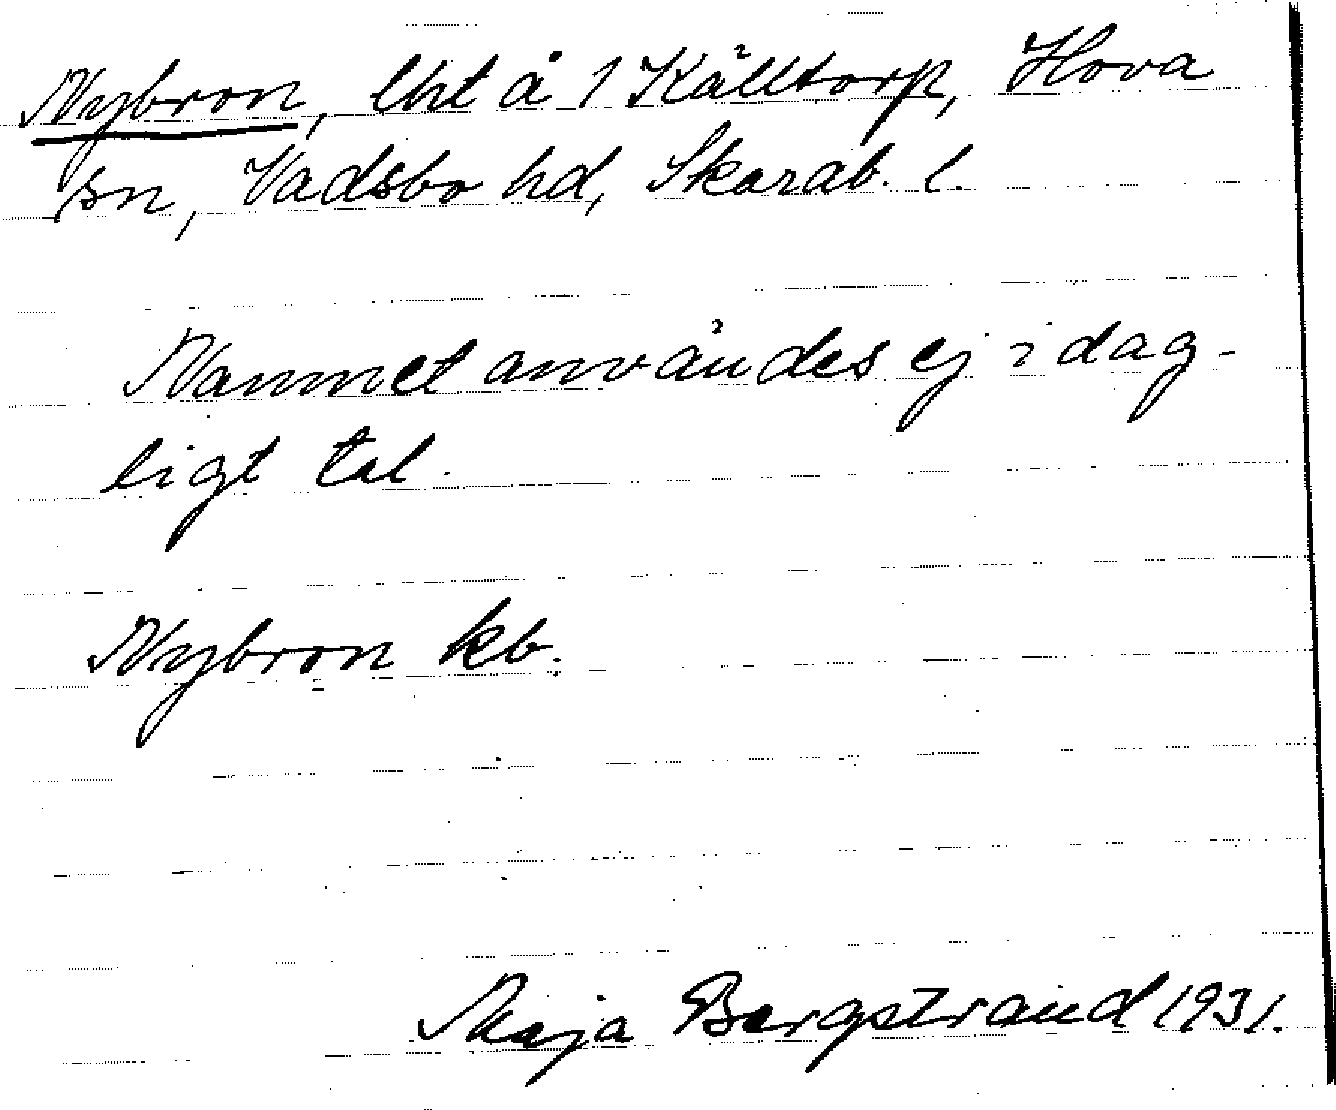 Nybron, lht å 1 Källtorp, Hova
sn, Vadsbo hd, Skarab. l.
Namnet användes ej i dag-
ligt tal.
Nybron kb.
Maja Bergstrand 1931.